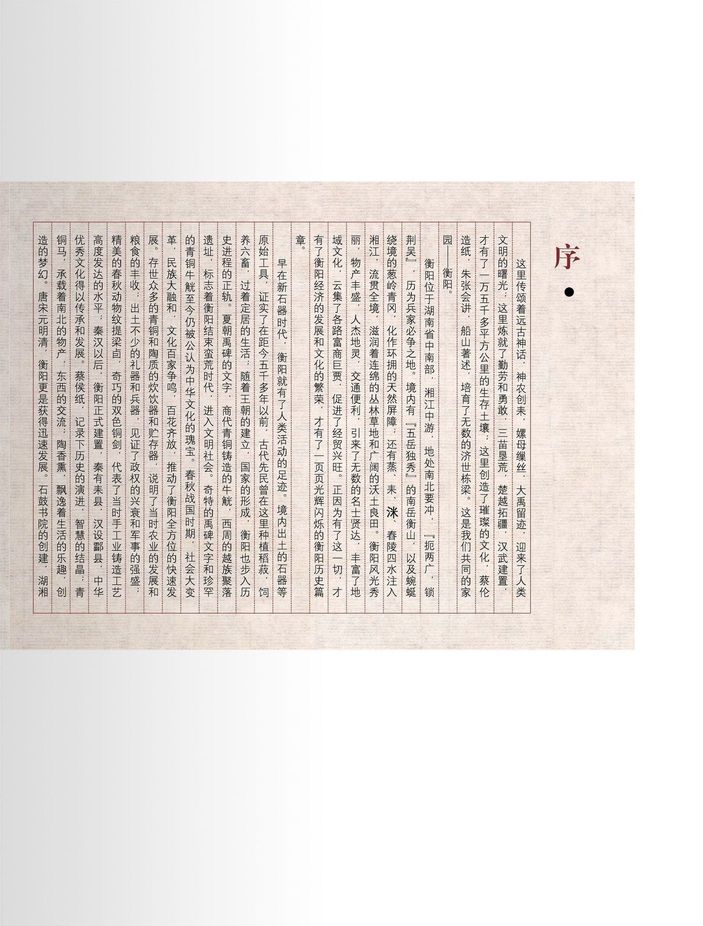 序
这里传颂着远古神话，神农创耒，嫘母缫丝，大禹留迹，迎来了人类
文明的曙光；这里炼就了勤劳和勇敢，三苗垦荒，楚越拓疆，汉武建置，
才有了一万五千多平方公里的生存土壤；这里创造了璀璨的文化，蔡伦
造纸，朱张会讲，船山著述，培育了无数的济世栋梁。这是我们共同的家
园——衡阳。
衡阳位于湖南省中南部，湘江中游，地处南北要冲，『扼两广，锁
荆吴』，历为兵家必争之地。境内有『五岳独秀』的南岳衡山，以及蜿蜒
绕境的葱岭青冈，化作环拥的天然屏障；还有蒸、耒、洣、舂陵四水注入
湘江，流贯全境，滋润着连绵的丛林草地和广阔的沃土良田。衡阳风光秀
丽，物产丰盛，人杰地灵，交通便利，引来了无数的名士贤达，丰富了地
域文化，云集了各路富商巨贾，促进了经贸兴旺。正因为有了这一切，才
有了衡阳经济的发展和文化的繁荣，才有了一页页光辉闪烁的衡阳历史篇
章。
早在新石器时代，衡阳就有了人类活动的足迹。境内出土的石器等
原始工具，证实了在距今五千多年以前，古代先民曾在这里种植稻菽，饲
养六畜，过着定居的生活；随着王朝的建立，国家的形成，衡阳也步入历
史进程的正轨。夏朝禹碑的文字，商代青铜铸造的牛觥，西周的越族聚落
遗址，标志着衡阳结束蛮荒时代，进入文明社会。奇特的禹碑文字和珍罕
的青铜牛觥至今仍被公认为中华文化的瑰宝。春秋战国时期，社会大变
革，民族大融和，文化百家争鸣，百花齐放，推动了衡阳全方位的快速发
展。存世众多的青铜和陶质的炊饮器和贮存器，说明了当时农业的发展和
粮食的丰收；出土不少的礼器和兵器，见证了政权的兴衰和军事的强盛，
精美的春秋动物纹提梁卣，奇巧的双色铜剑，代表了当时手工业铸造工艺
高度发达的水平；秦汉以后，衡阳正式建置，秦有耒县，汉设酃县，中华
优秀文化得以传承和发展。蔡侯纸，记录下历史的演进，智慧的结晶，青
铜马，承载着南北的物产，东西的交流，陶香熏，飘逸着生活的乐趣，创
造的梦幻。唐宋元明清，衡阳更是获得迅速发展。石鼓书院的创建，湖湘